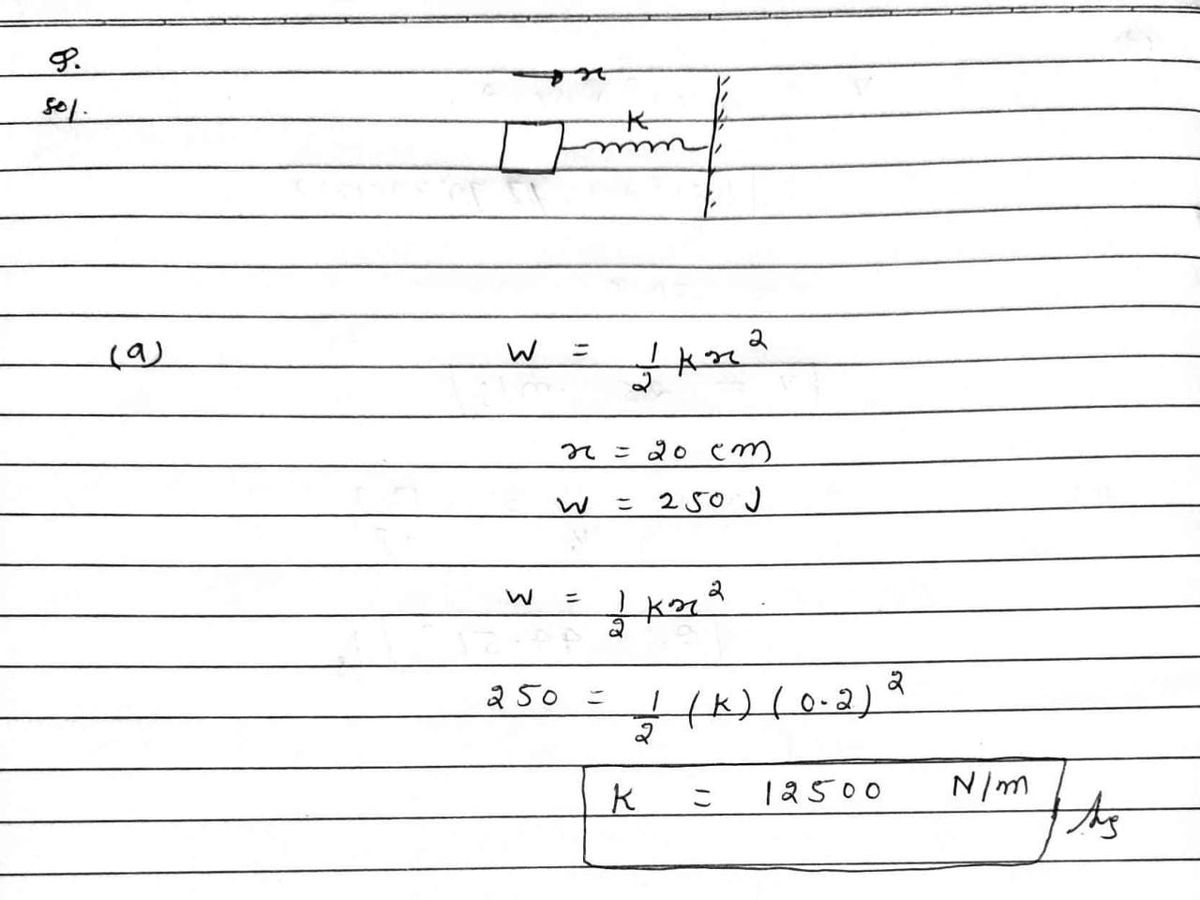 Q.
Sol.
→ x
K
(a) W = 1/2 Kx²
x = 20 cm
W = 250 J
W = 1/2 Kx²
250 = 1/2 (K) (0.2)²
K = 12500 N/m Ans